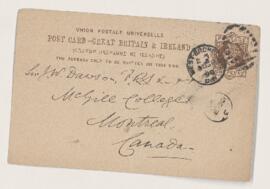 UNION POSTALE UNIVERSELLE
POST CARD - GREAT BRITAIN & IRELAND
(GRANDE BRETAGNE ET IRLANDE)
THE ADDRESS ONLY TO BE WRITTEN ON THIS SIDE
Sir J. W. Dawson, F.R.S. &
McGill College
Montreal
Canada